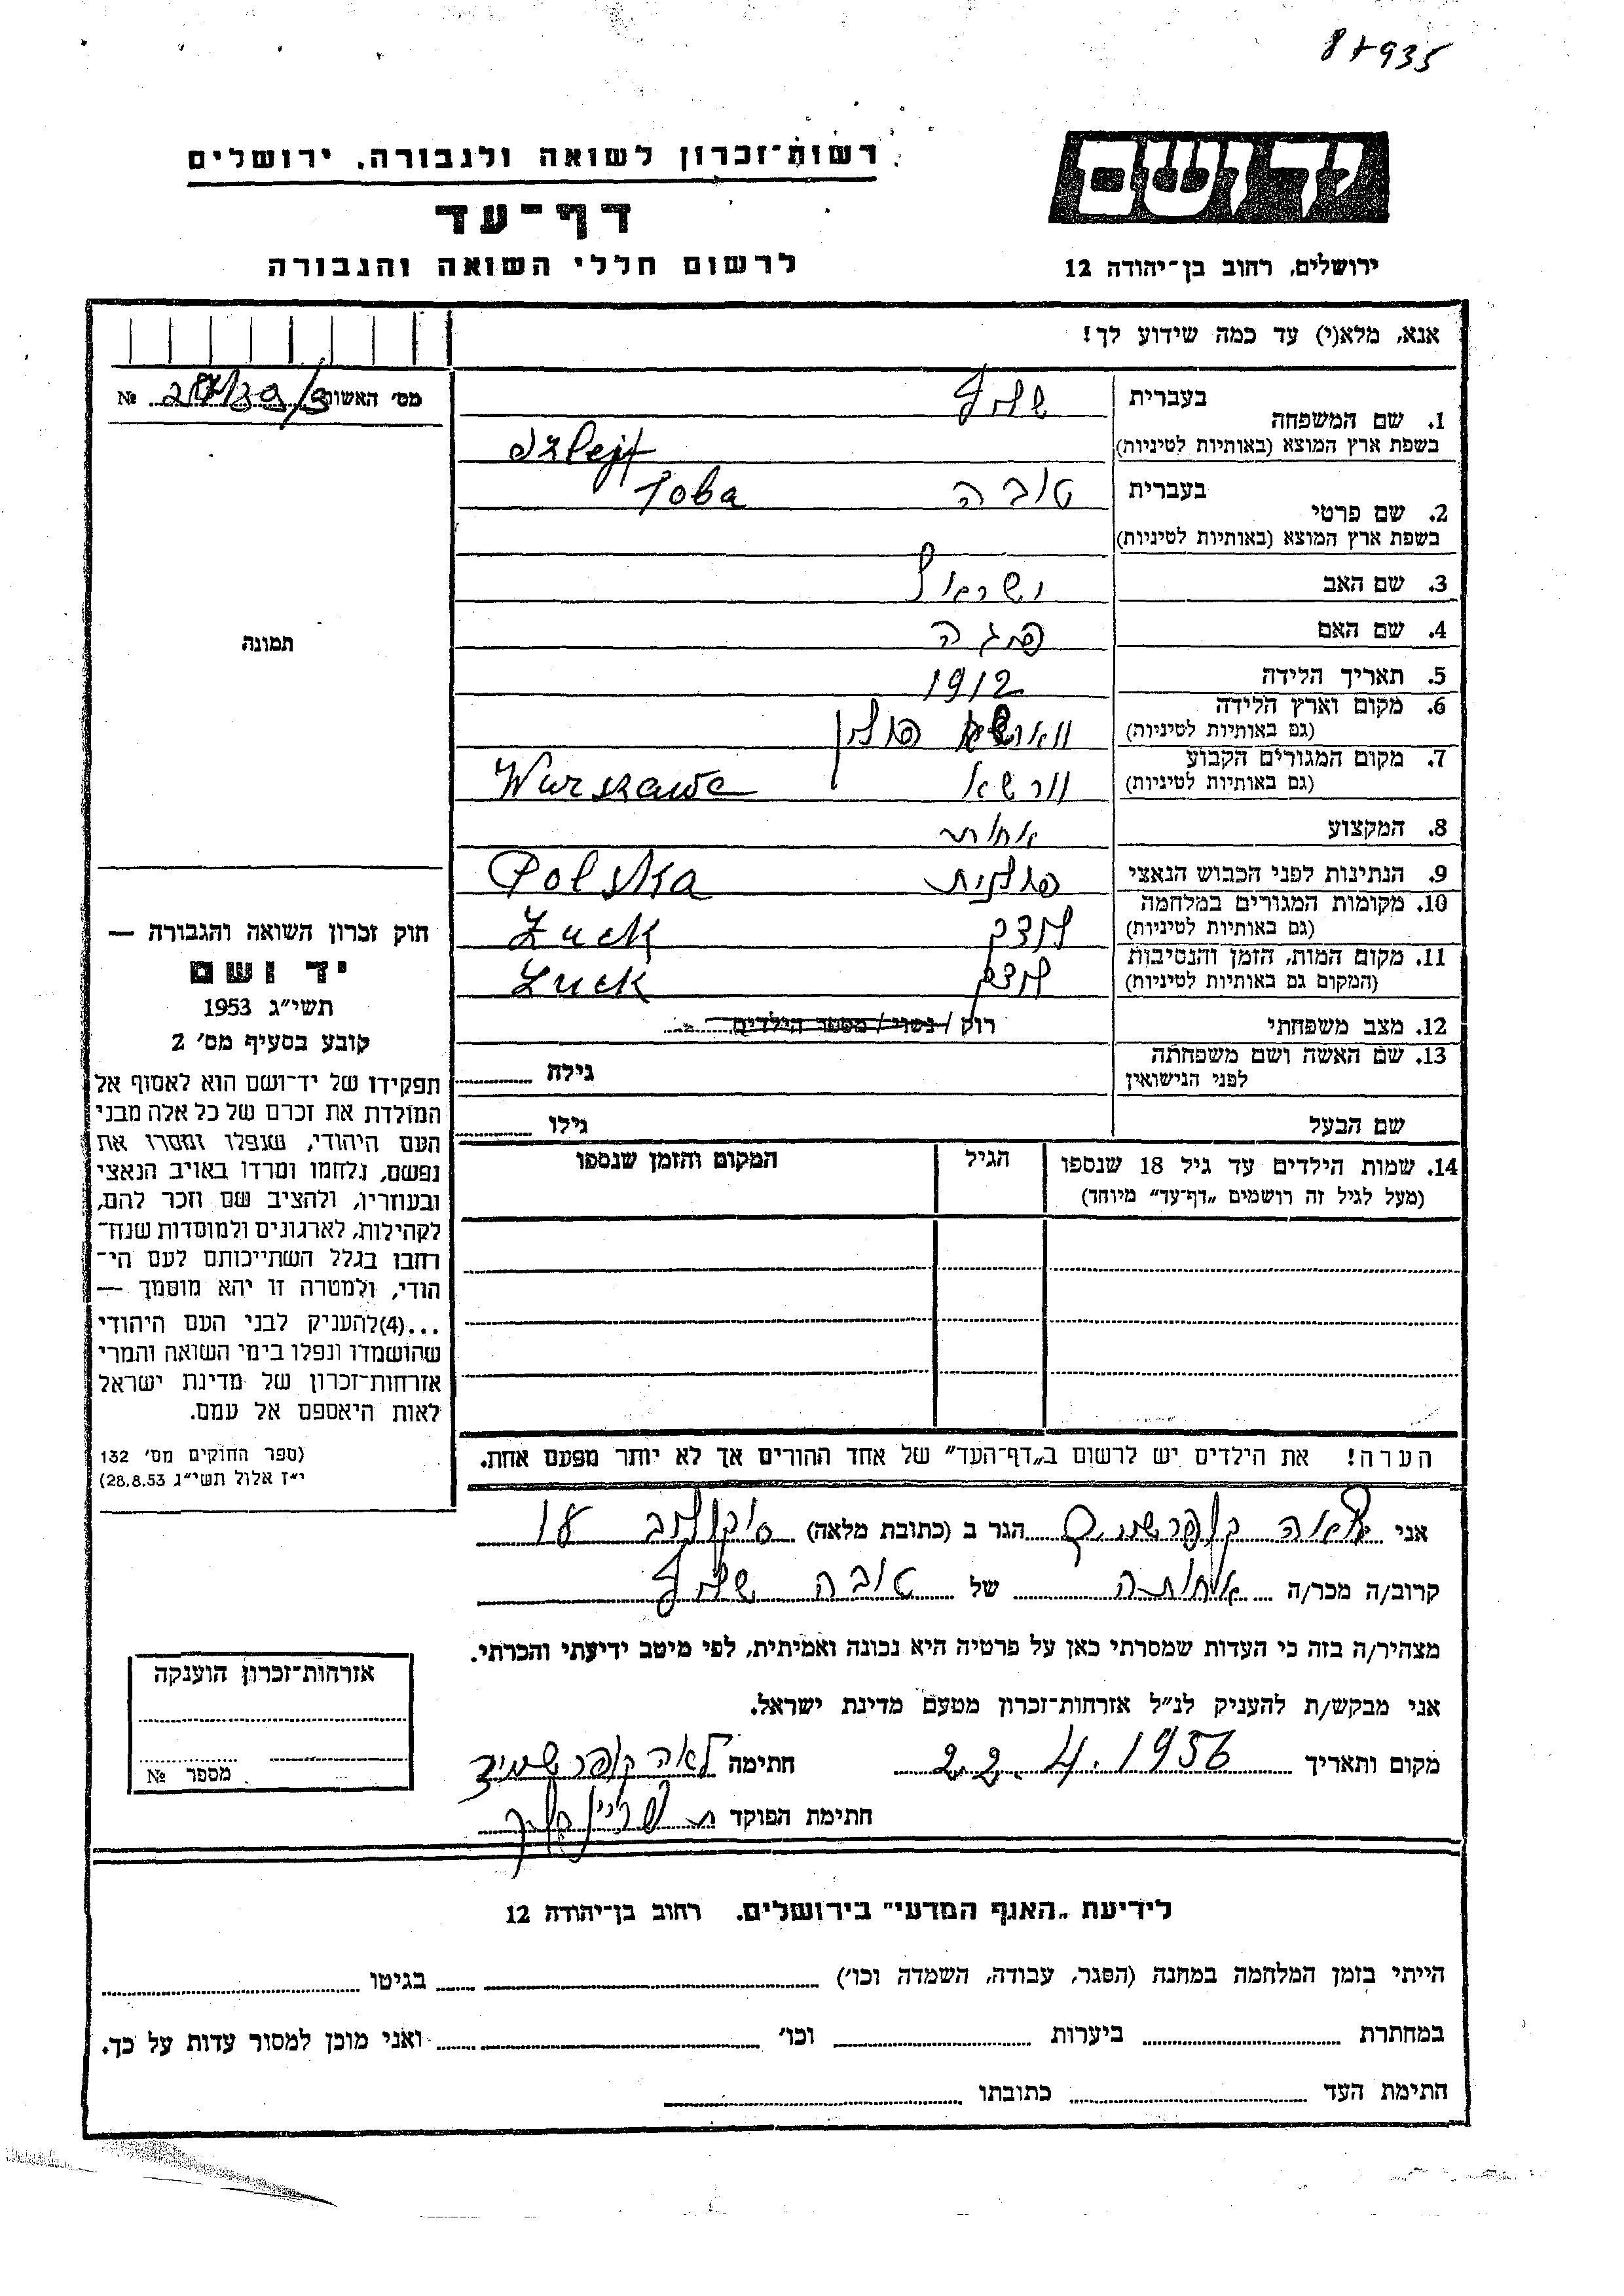 87935
רשות־זכרון לשואה ולגבורה, ירושלים
דף־עד
לרשום חללי השואה והגבורה
יד ושם
ירושלים, רחוב בן־יהודה 12
אנא, מלא(י) עד כמה שידוע לך!
מס׳ האשור №
1. שם המשפחה
בעברית שלוף
בשפת ארץ המוצא (באותיות לטיניות) Szlejf
2. שם פרטי
בעברית טובה Toba
בשפת ארץ המוצא (באותיות לטיניות)
3. שם האב ישראל
4. שם האם
5. תאריך הלידה 1912
6. מקום וארץ הלידה פולין
(גם באותיות לטיניות)
7. מקום המגורים הקבוע
(גם באותיות לטיניות) ורשא Warszawa
8. המקצוע אחות
9. הנתינות לפני הכבוש הנאצי פולנית Polska
10. מקומות המגורים במלחמה
(גם באותיות לטיניות) לוצק Łuck
11. מקום המות, הזמן והנסיבות
(המקום גם באותיות לטיניות) לוצק Łuck
12. מצב משפחתי רוק / נשוי / מספר הילדים
13. שם האשה ושם משפחתה
לפני הנישואין גילה
שם הבעל גילו
14. שמות הילדים עד גיל 18 שנספו
(מעל לגיל זה רושמים „דף־עד״ מיוחד)
הגיל
המקום והזמן שנספו
הערה! את הילדים יש לרשום ב„דף־העד״ של אחד ההורים אך לא יותר מפעם אחת.
תמונה
חוק זכרון השואה והגבורה —
יד ושם
תשי״ג 1953
קובע בסעיף מס׳ 2
תפקידו של יד־ושם הוא לאסוף אל
המולדת את זכרם של כל אלה מבני
העם היהודי, שנפלו ומסרו את
נפשם, נלחמו ומרדו באויב הנאצי
ובעוזריו, ולהציב שם וזכר להם,
לקהילות, לארגונים ולמוסדות שנח־
רחבו בגלל השתייכותם לעם הי־
הודי, ולמטרה זו יהא מוסמך —
...(4)להעניק לבני העם היהודי
שהושמדו ונפלו בימי השואה והמרי
אזרחות־זכרון של מדינת ישראל
לאות היאספם אל עמם.
(ספר החוקים מס׳ 132
י״ז אלול תשי״ג 28.8.53)
אני לאה קופרשמיד הגר ב (כתובת מלאה) סוקולוב
קרוב/ה מכר/ה אחותה של טובה שלוף
מצהיר/ה בזה כי העדות שמסרתי כאן על פרטיה היא נכונה ואמיתית, לפי מיטב ידיעתי והכרתי.
אני מבקש/ת להעניק לנ״ל אזרחות־זכרון מטעם מדינת ישראל.
מקום ותאריך 22.4.1956 חתימה לאה קופרשמיד
חתימת הפוקד
אזרחות־זכרון הוענקה
מספר №
לידיעת „האגף המדעי״ בירושלים. רחוב בן־יהודה 12
הייתי בזמן המלחמה במחנה (הסגר, עבודה, השמדה וכו׳) בגיטו
במחתרת ביערות וכו׳ ואני מוכן למסור עדות על כך.
חתימת העד כתובתו